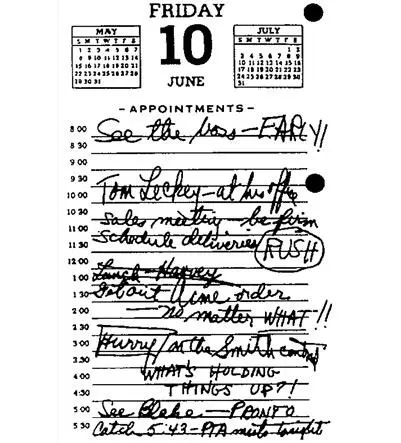 FRIDAY
MAY
S M T W T F S
1 2 3 4 5 6 7
8 9 10 11 12 13 14
15 16 17 18 19 20 21
22 23 24 25 26 27 28
29 30 31
10
JULY
S M T W T F S
1 2
3 4 5 6 7 8 9
10 11 12 13 14 15 16
17 18 19 20 21 22 23
24 25 26 27 28 29 30
31
JUNE
-APPOINTMENTS-
8 00 See the boss-EARLY!
8 30
9 00
9 30 Tom Leckey-at his office
10 00
10 30 Sales meeting-be firm
11 00 Schedule deliveries RUSH
11 30
12 00 Lunch-Harvey
1 00 Get out Acme order
1 30 -no matter WHAT!!
2 00
2 30 Hurry on the Smith contract
3 00
3 30 WHAT'S HOLDING
4 00 THINGS UP?!
4 30
5 00 See Blake-PRONTO
5 30 Catch 5:43-PTA meets tonight